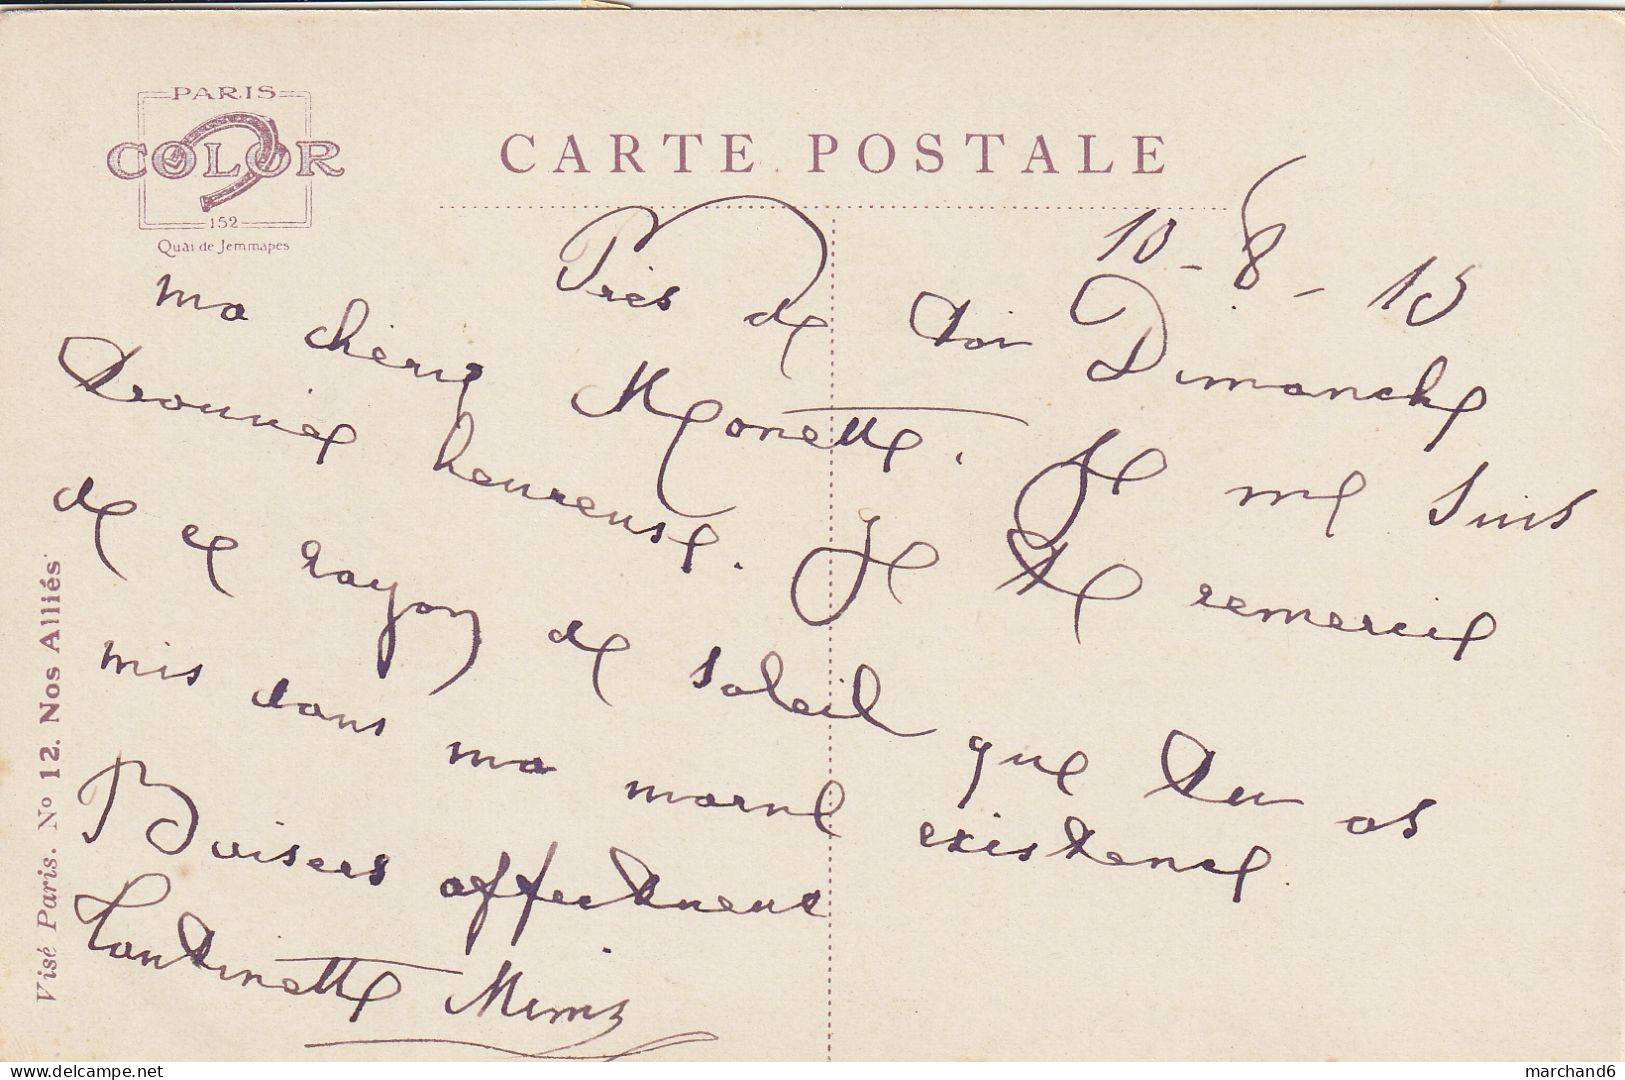 PARIS
COLOR
152
Quai de Jemmapes
CARTE POSTALE
10-8-15
ma chérie Monette.
Près de toi Dimanche Je me suis
trouvée heureuse. Je te remercie
de ce rayon de soleil que tu as
mis dans ma morne existence
Baisers affectueux
Mimi
Visé Paris. Nº 12. Nos Alliés
delcampe.net
marchand6